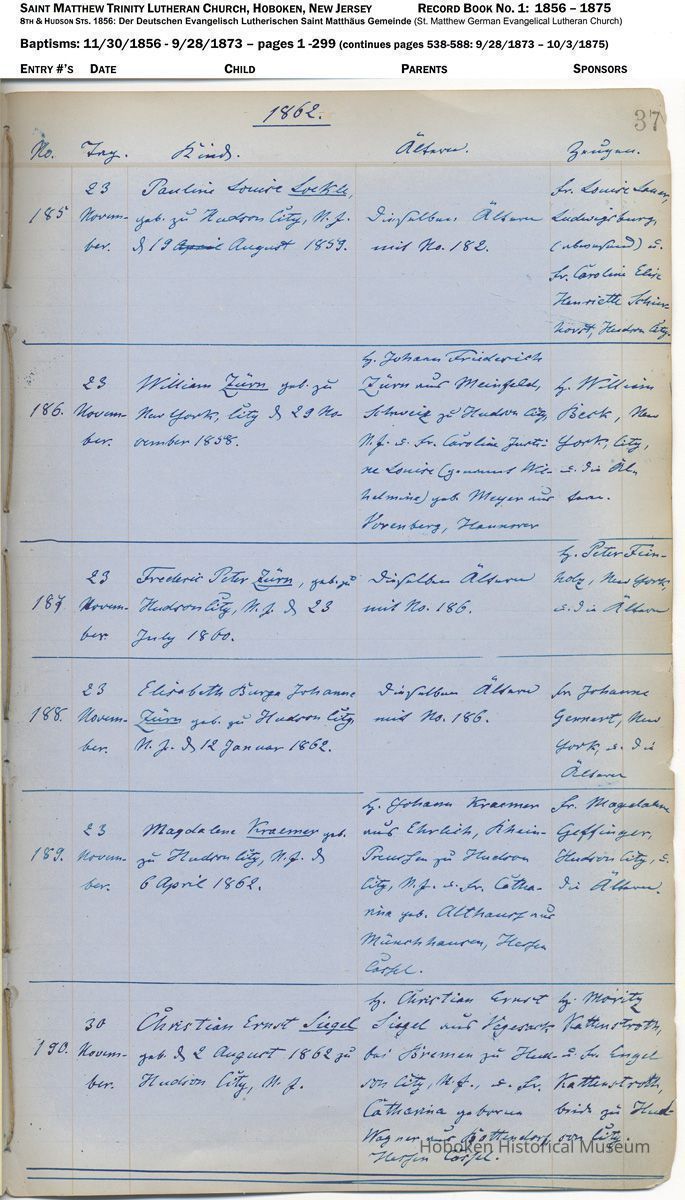 SAINT MATTHEW TRINITY LUTHERAN CHURCH, HOBOKEN, NEW JERSEY RECORD BOOK NO. 1: 1856 – 1875
8TH & HUDSON STS. 1856: Der Deutschen Evangelisch Lutherischen Saint Matthäus Gemeinde (St. Matthew German Evangelical Lutheran Church)
Baptisms: 11/30/1856 - 9/28/1873 – pages 1 -299 (continues pages 538-588: 9/28/1873 – 10/3/1875)
ENTRY #'S DATE CHILD PARENTS SPONSORS
1862.
37
No. Tag. Kind. Ältern. Zeugen.
185
23
Novem-
ber.
Pauline Louise Loekle,
geb. zu Hudson City, N. J.
d. 19 April August 1859.
Dieselben Ältern
mit No. 182.
Fr. Louise
Ludwigsburg,
(abwesend) u.
Fr. Caroline Elise
Henriette
horst, Hudson City.
186.
23
Novem-
ber.
William Zürn geb. zu
New York, City d. 29 No-
vember 1858.
H. Johann Friederich
Zürn aus Meinfeld,
Schweiz zu Hudson City,
N. J. u. Fr. Caroline Justi-
ne Louise (genannt Wil-
helmine) geb. Meyer aus
Vorenberg, Hannover
H. William
Beck, New
York, City,
u. die Äl-
tern.
187
23
Novem-
ber.
Frederic Peter Zürn, geb. zu
Hudson City, N. J. d. 23
July 1860.
Dieselben Ältern
mit No. 186.
H. Peter Fein-
holz, New York,
u. die Ältern
188.
23
Novem-
ber.
Elisabeth Burga Johanne
Zürn geb. zu Hudson City,
N. J. d. 12 Januar 1862.
Dieselben Ältern
mit No. 186.
Fr. Johanne
Gernert, New
York, u. die
Ältern
189.
23
Novem-
ber.
Magdalene Kraemer geb.
zu Hudson City, N. J. d.
6 April 1862.
H. Johann Kraemer
aus Ehrlich, Rhein-
Preussen zu Hudson
City, N. J. u. Fr. Catha-
rina geb. Althaus aus
Münchhausen, Hessen
Cassel.
Fr. Magdalene
Geffinger,
Hudson City, u.
die Ältern.
190.
30
Novem-
ber.
Christian Ernst Siegel
geb. d. 2 August 1862 zu
Hudson City, N. J.
H. Christian Ernst
Siegel aus Vegesack
bei Bremen zu Hud-
son City, N. J., u. Fr.
Catharina geborne
Wagner aus Bottendorf,
Hessen Cassel.
H. Moritz
Kattenstroth,
u. Fr. Engel
Kattenstroth,
beide zu Hud-
son City.
Hoboken Historical Museum